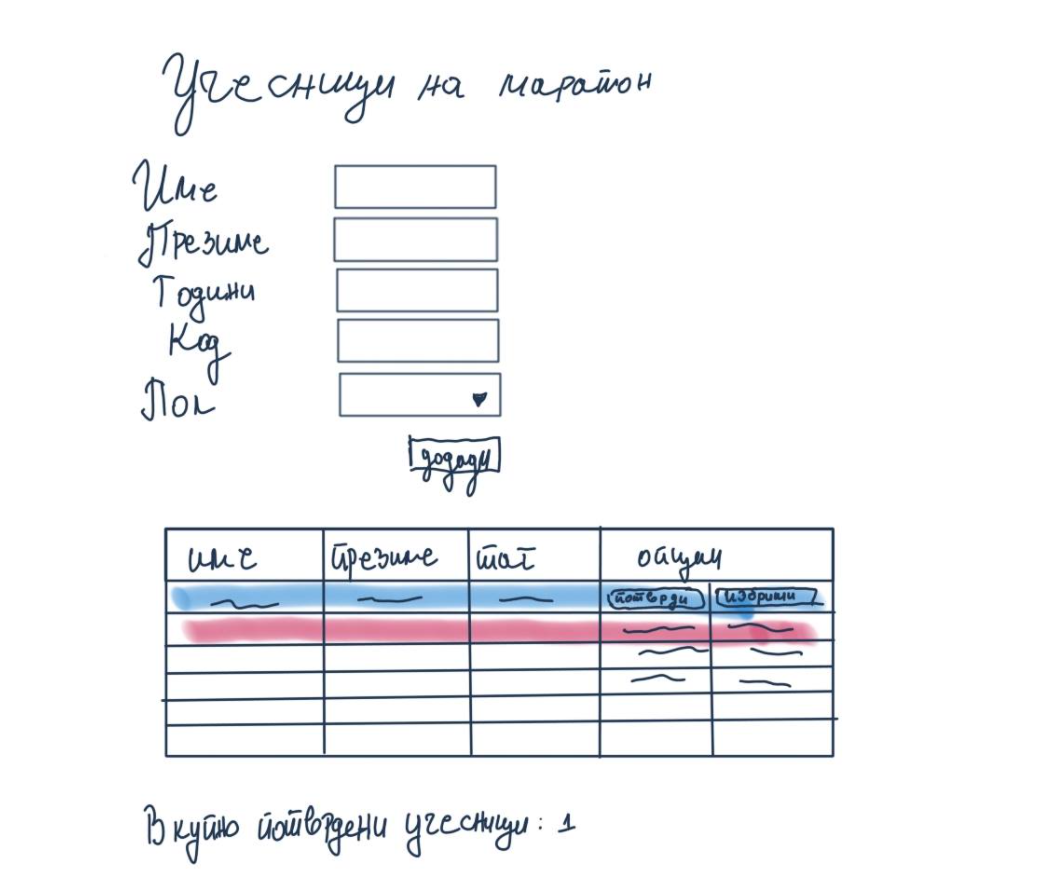 Учесници на маратон
Име
Презиме
Години
Код
Пол
додади
име презиме таг опции
потврди избриши
Вкупно потврдени учесници: 1